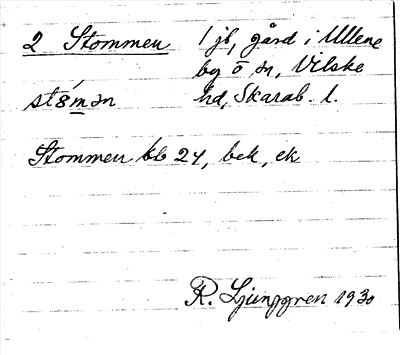 2 Stommen 1 jb, gård i Ullene
by o sn, Vilske
hd, Skarab. l.
Stommen kb 24, bek, ek
R. Ljunggren 1930